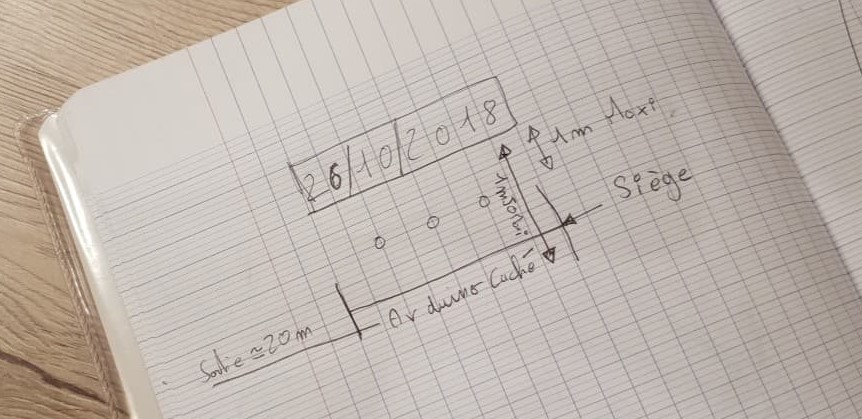 26/10/2018
1m Maxi.
1m50 Mini
Siège
Arduino Caché
Sortie ≃ 20 m